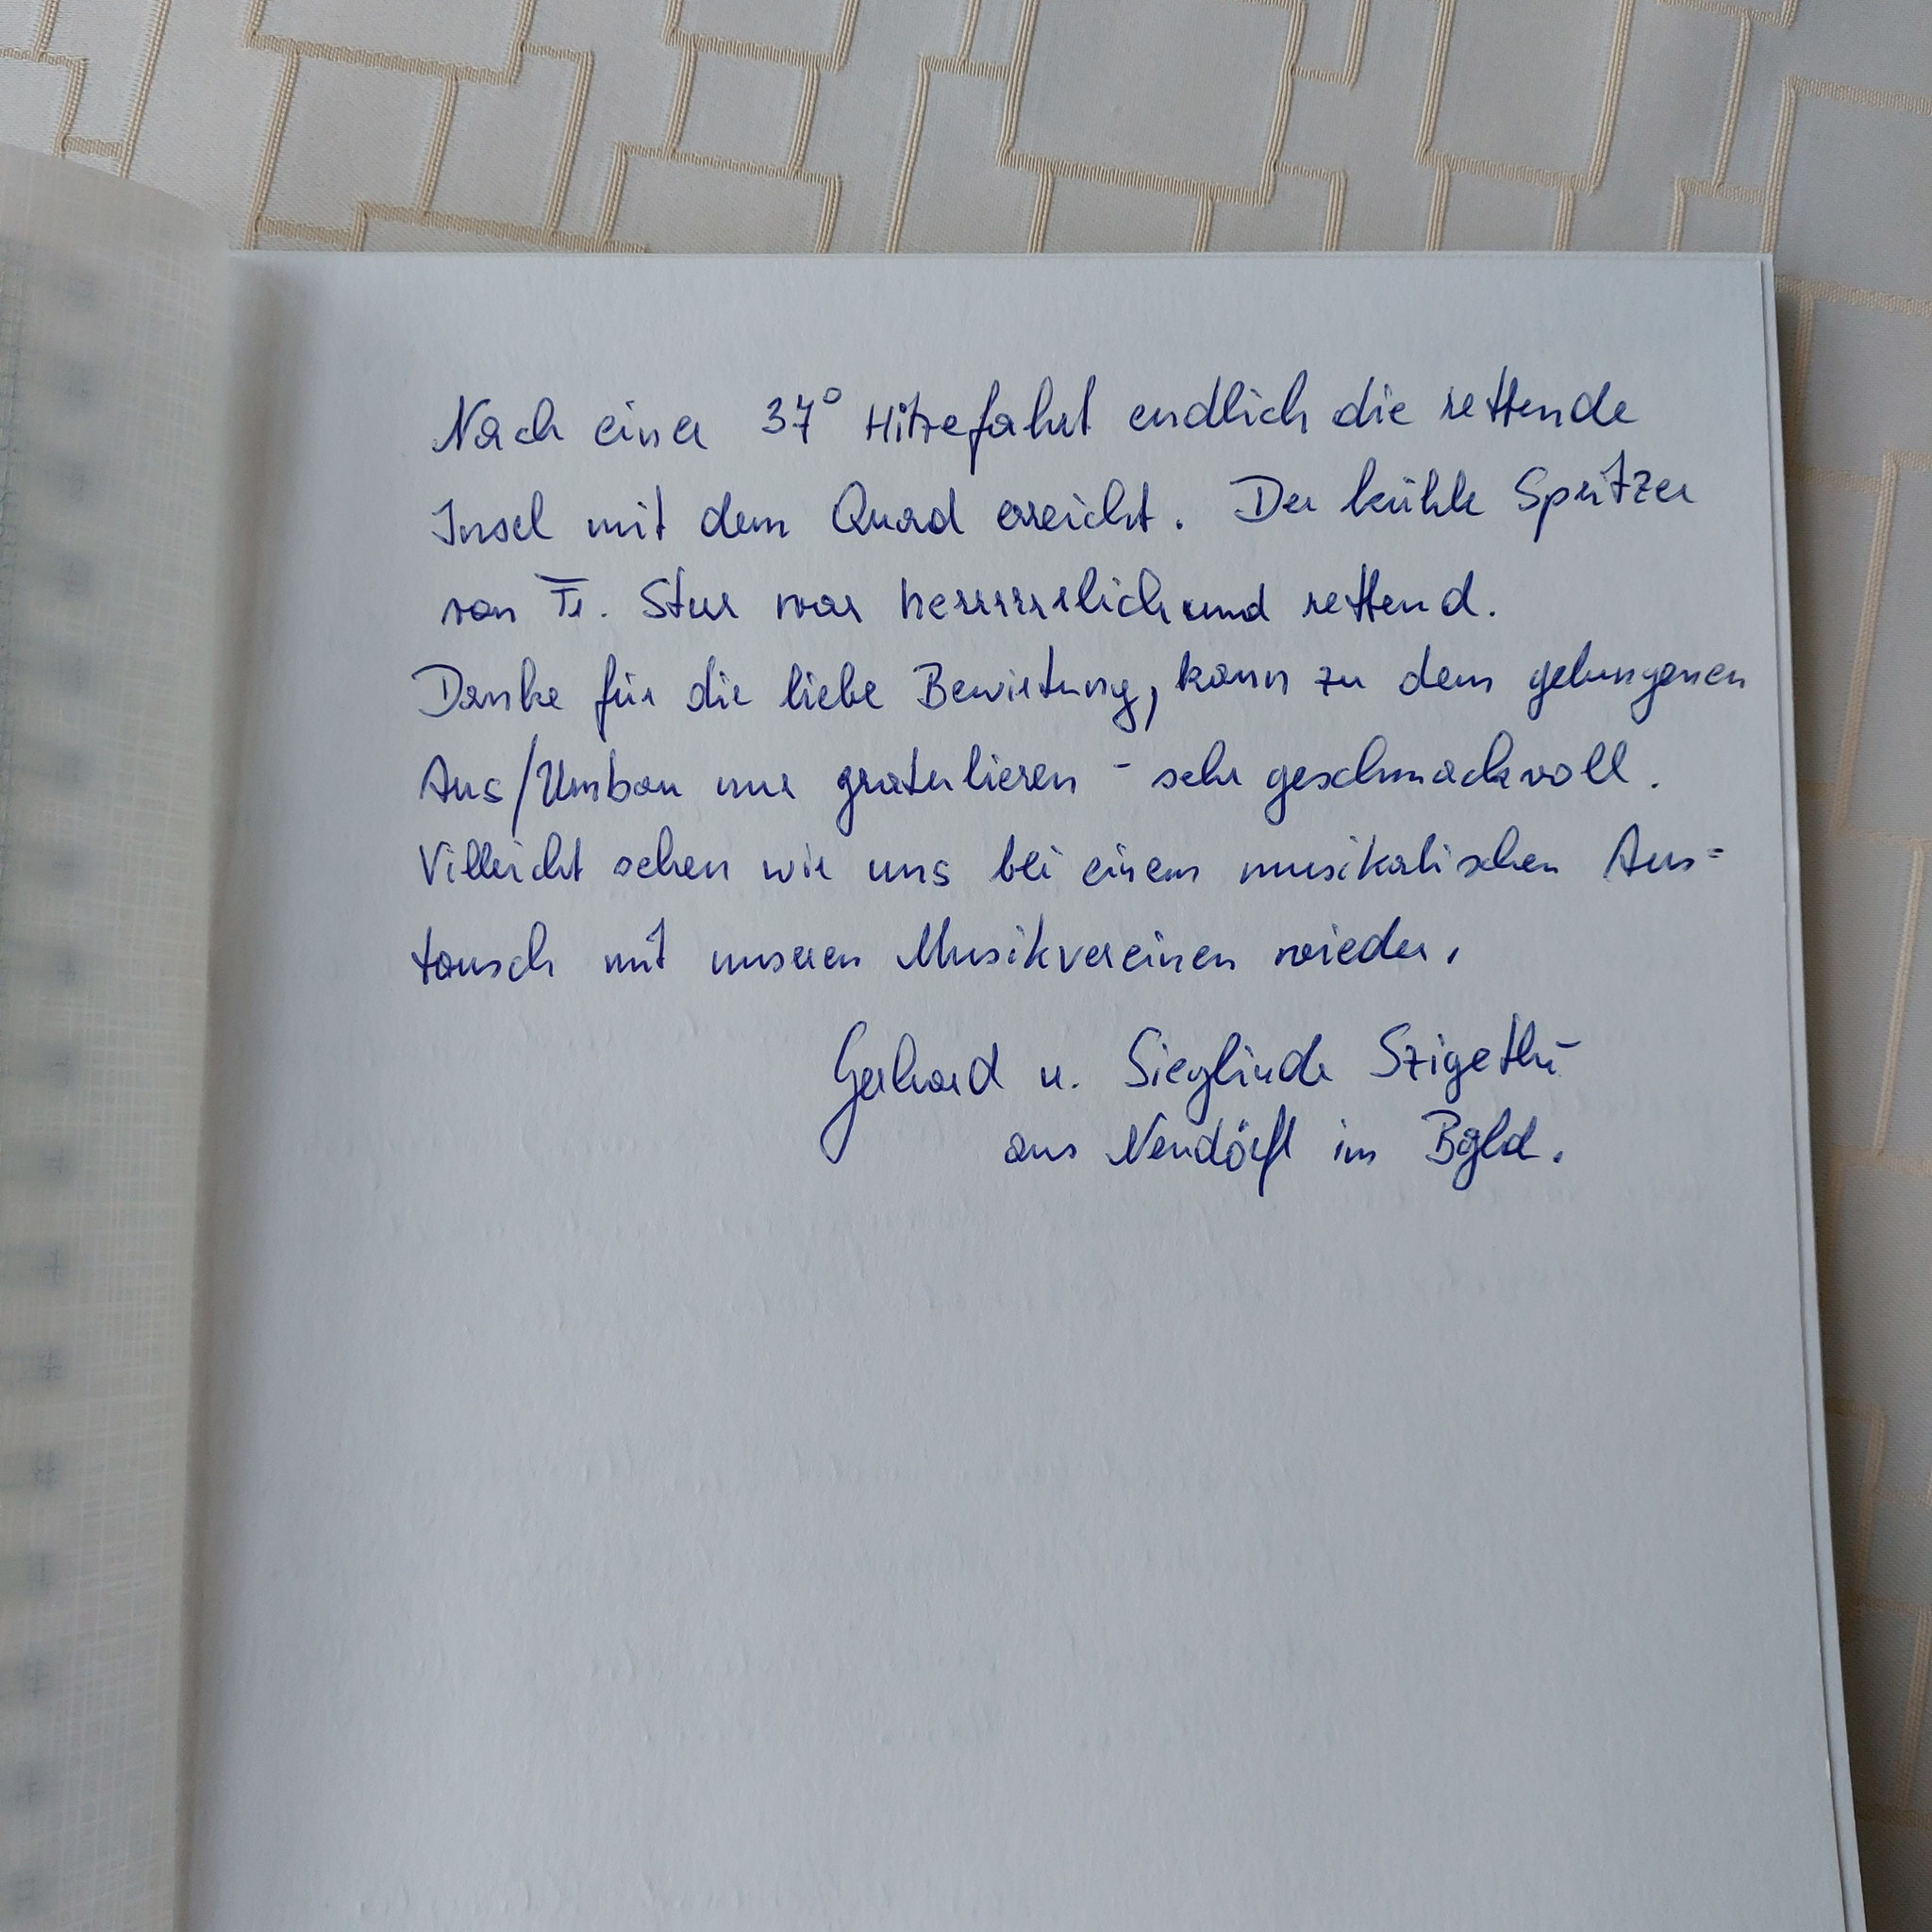 Nach einer 37° Hitzefahrt endlich die rettende
Insel mit dem Quad erreicht. Der kühle Spritzer
von Fr. Stur war herrrrrrlich und rettend.
Danke für die liebe Bewirtung, kann zu dem gelungenen
Aus/Umbau nur gratulieren - sehr geschmackvoll.
Villeicht sehen wir uns bei einem musikalischen Aus=
tausch mit unseren Musikvereinen wieder.
Gerhard u. Sieglinde Szigethi
aus Neudörfl im Bgld.